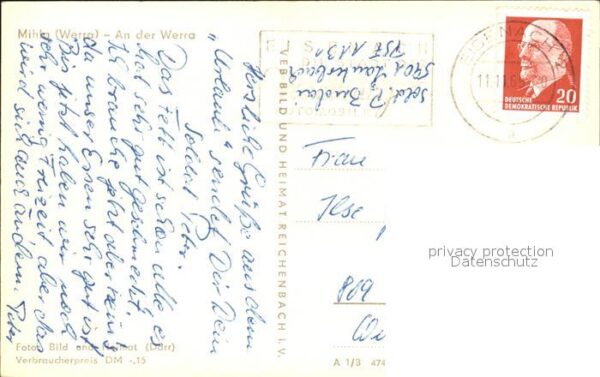 Mihla (Werra) - An der Werra
Herzliche Grüße aus dem
"Urlaub" sendet Dir Dein
Soldat Peter.
Das Fett ist schon alle es
hat sehr gut geschmeckt.
Ich brauche jetzt aber keins
da unser Essen sehr gut ist.
Bis jetzt haben wir noch
sehr wenig Freizeit aber das
wird sich auch ändern. Peter
Foto: Bild und Heimat (Darr)
Verbraucherpreis DM -,15
VEB BILD UND HEIMAT REICHENBACH I. V.
A 1/3 474
Sold. P.
5901 Lauterbach
PSF 1131
EISENACH
11.11.65
DEUTSCHE
DEMOKRATISCHE REPUBLIK
20
Frau
Ilse
privacy protection
Datenschutz